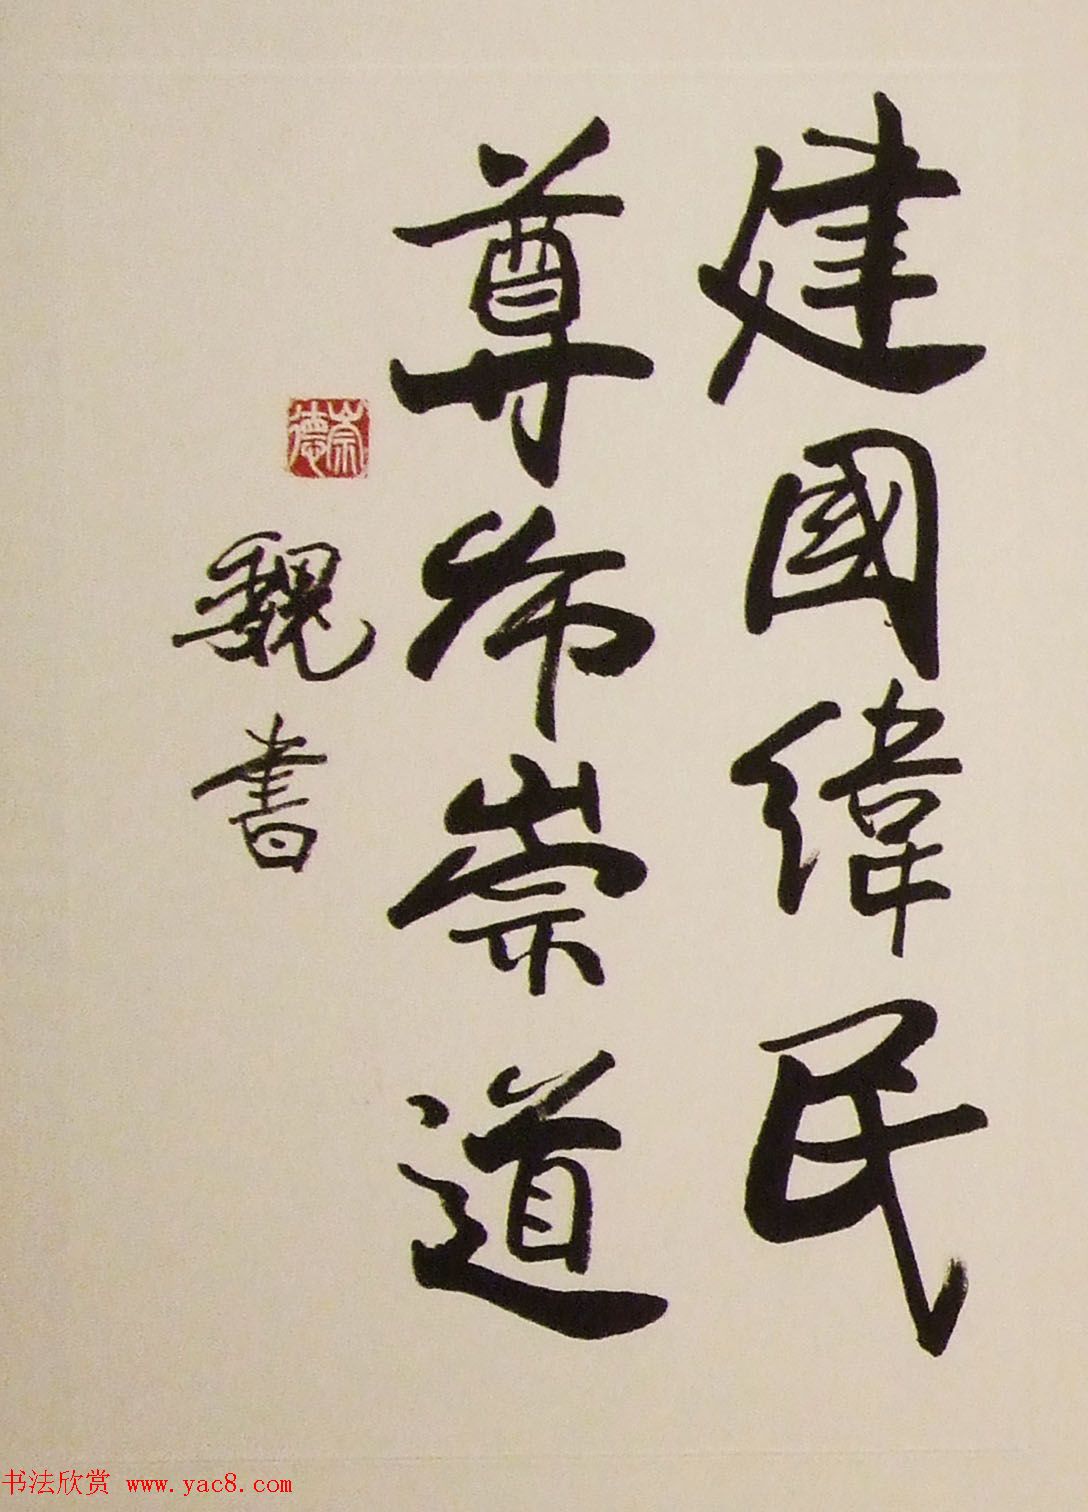 建國緯民
尊师崇道
崇德
魏書
书法欣赏 www.yac8.com